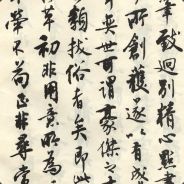 筆致迥別精心點畫
所創獲遂以成
世可謂豪傑之
類拔俗者矣即此
初非用意為
不苟正非尋常